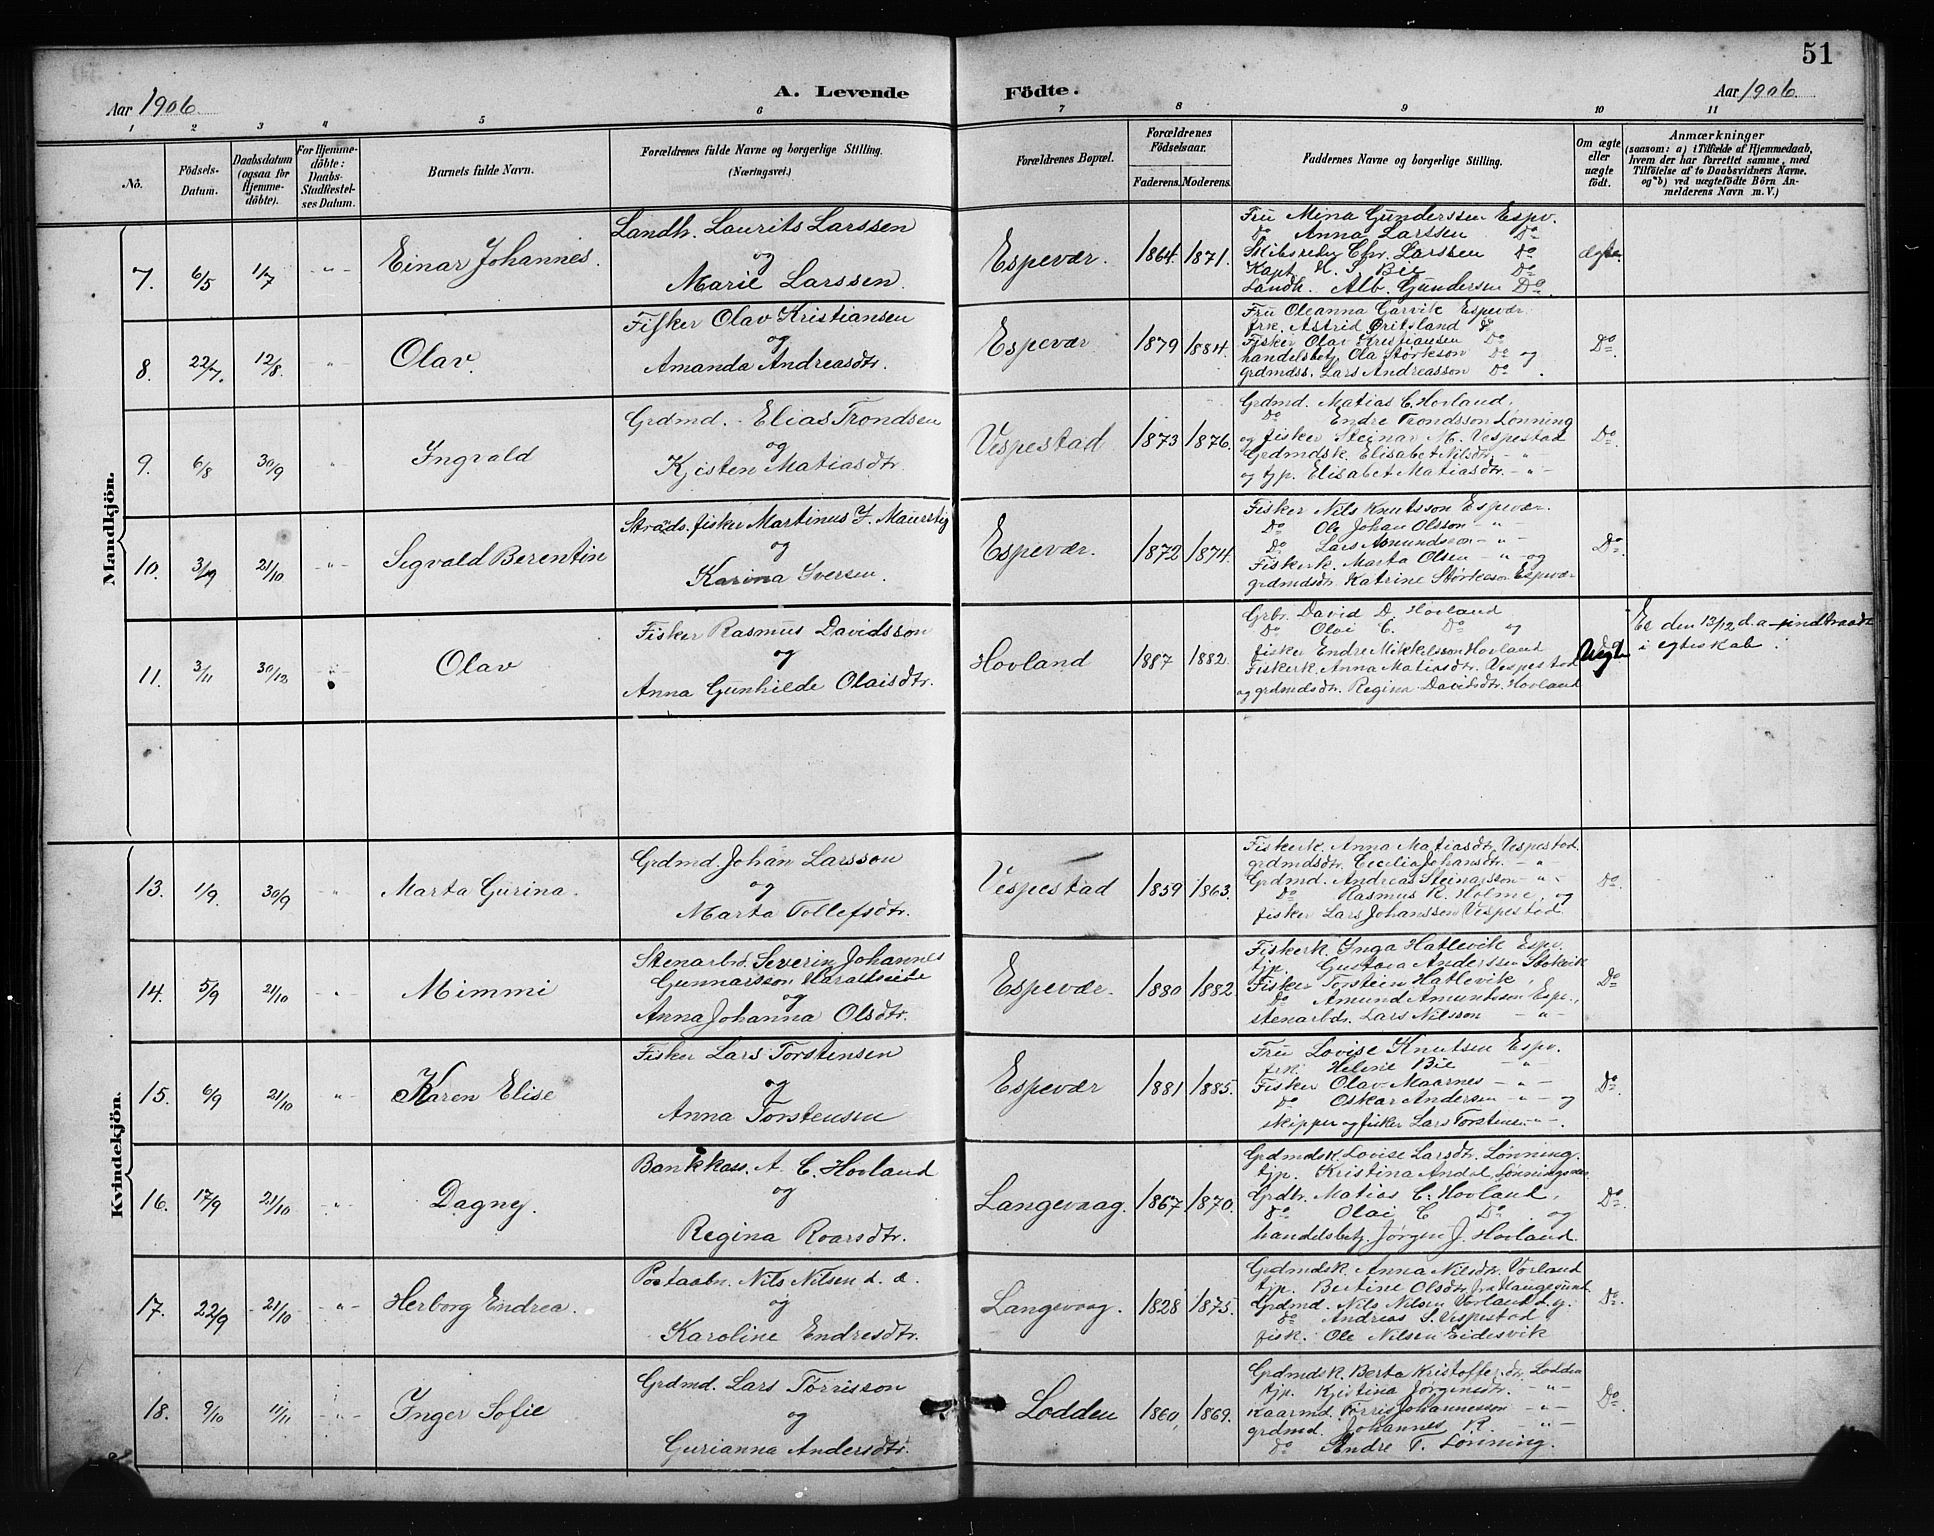 51
Aar 1906.
A. Levende
Födte.
Aar 1906.
1 2 3 4 5 6 7 8 9 10 11
No.
Födsels-Datum.
Daabsdatum (ogsaa for Hjemme-döbte).
For Hjemme-döbte: Daabs-Stadfæstel-ses Datum.
Barnets fulde Navn.
Forældrenes fulde Navne og borgerlige Stilling. (Næringsvei.)
Forældrenes Bopæl.
Forældrenes Födselsaar.
Faderens. Moderens.
Faddernes Navne og borgerlige Stilling.
Om ægte eller uægte födt.
Anmærkninger
(saasom: a) i Tilfælde af Hjemmedaab, hvem der har forrettet samme, med Tilföielse af to Daabsvidners Navne. og b) ved uægtefödte Börn An-melderens Navn m. V.)
Mandkjön.
7. 6/5 1/7 -"- Einar Johannes.
Landh. Laurits Larssen
og
Marie Larssen.
Espevær. 1864. 1871.
Fru Mina Gunderssen Espv.
Do Anna Larssen Do
Skibsreder Chr. Larssen Do
Kapt. H. S. Bee Do
Landh. Alb. Gundersen Do.
ægte.
8. 22/7. 12/8. -"- Olav.
Fisker Olav Kristiansen
og
Amanda Andreasdtr.
Espevær 1879 1884.
Fru Oleanna Garvik Espevær.
frk. Astrid Dritsland Do
Fisker Olav Kristiansen Do
handelsbetj. Ola Størkson Do og
grdmdss. Lars Andreasson Do.
Do.
9. 6/8 30/9 " Ingvald
Grdmd. Elias Trondsen
og
Kjesten Matiasdtr.
Vespestad 1873 1876.
Grdmd. Matias C. Hovland,
Do Endre Trondsson Lønning
og fisker Steinar M. Vespestad
Grdmdsk. Elisabet Nilsdtr. -"-
og tjp. Elisabet Matiasdtr. -"-
Do.
10. 3/9 21/10 -"- Sigvald Berentin
Strads. fisker Martinus J. Maurstig
og
Karina Iversen.
Espevær. 1872 1874.
Fisker Nils Knutsson Espevær.
Do Ole Johan Olsson -"-
Do Lars Asmundsson -"-
Fiskerk. Marta Olsen -"- og
grdmdsdtr. Katrine Størksson Espevær
Do.
11. 3/11 30/12 -"- Olav
Fisker Rasmus Davidsson
og
Anna Gunhilde Olaisdtr.
Hovland 1887 1882.
Grbr. David D. Hovland
Do Olai C. Do og
fisker Endre Mikkelsson Hovland
Fiskerk. Anna Matiasdtr. Vespestad
og grdmdsdtr. Regina Davidsdtr. Hovland
Uegte
Er den 13/12 d.a. indtraadt
i egteskab.
Kvindekjön.
13. 1/9. 30/9 -"- Marta Gurina.
Grdmd. Johan Larsson
og
Marta Tollefsdtr.
Vespestad 1859 1863.
Fiskerk. Anna Matiasdtr. Vespestad.
grdmdsdtr. Cecilia Johansdtr. -"-
Grdmd. Andreas Steinarsson -"-
Do Rasmus R. Holme, og
fisker Lars Johanssen Vespestad.
Do.
14. 5/9 21/10 " Mimmi
Stenarbd. Severin Johannes
Gunnarsson Haraldseide
og
Anna Johanna Olsdtr.
Espevær. 1880 1882
Fiskerk. Inga Hatlevik Espv.
tjp. Gustava Anderssen Stokvik
Fisker Torstein Hatlevik,
Do Amund Amundsson Espv.,
stenarbdr. Lars Nilsson -"-
Do
15. 6/9 21/10 -"- Karen Elise
Fisker Lars Torstensen
og
Anna Torstensen
Espevær 1881 1885.
Fru Lovise Knutsen Espv.
frk. Heline Bie "
Fisker Olav Maarnes -"-
Do Oskar Andersen -"- og
skipper og fisker Lars Torstens. -"-
Do.
16. 17/9 21/10 -"- Dagny.
Bankkass. A. C. Hovland
og
Regina Roarsdtr.
Langevaag. 1867 1870.
Grdmdsk. Lovise Larsdtr. Lønning.
tjp. Kristina Andd. Lønningsdal
Grdbr. Matias C. Hovland,
do Olai C Do og
handelsbetj. Jørgen J. Hovland.
Do.
17. 22/9 21/10 -"- Herborg Endrea.
Postaabn. Nils Nilsen d. æ.
og
Karoline Endresdtr.
Langevaag. 1828 1875.
Grdmdsk. Anna Nilsdtr. Vorland
tjp. Bertine Olsdtr. fra Haugesund
Grdmd. Nils Nilsen Vorland d. y.
do Andreas S. Vespestad
fisk. Ole Nilsen Eidesvik
Do.
18. 9/10 11/11 -"- Inger Sofie
Grdmd. Lars Tørrisson
og
Gurianna Andersdtr.
Lodden 1860, 1869.
Grdmdsk. Berta Kristoffersdtr. Lodden
tjp. Kjistina Jørgensdtr. -"-
Kaarmd. Tørris Johannesson -"-
grdmd. Johannes R. -"-
Do Andre T. Lønning.
Do